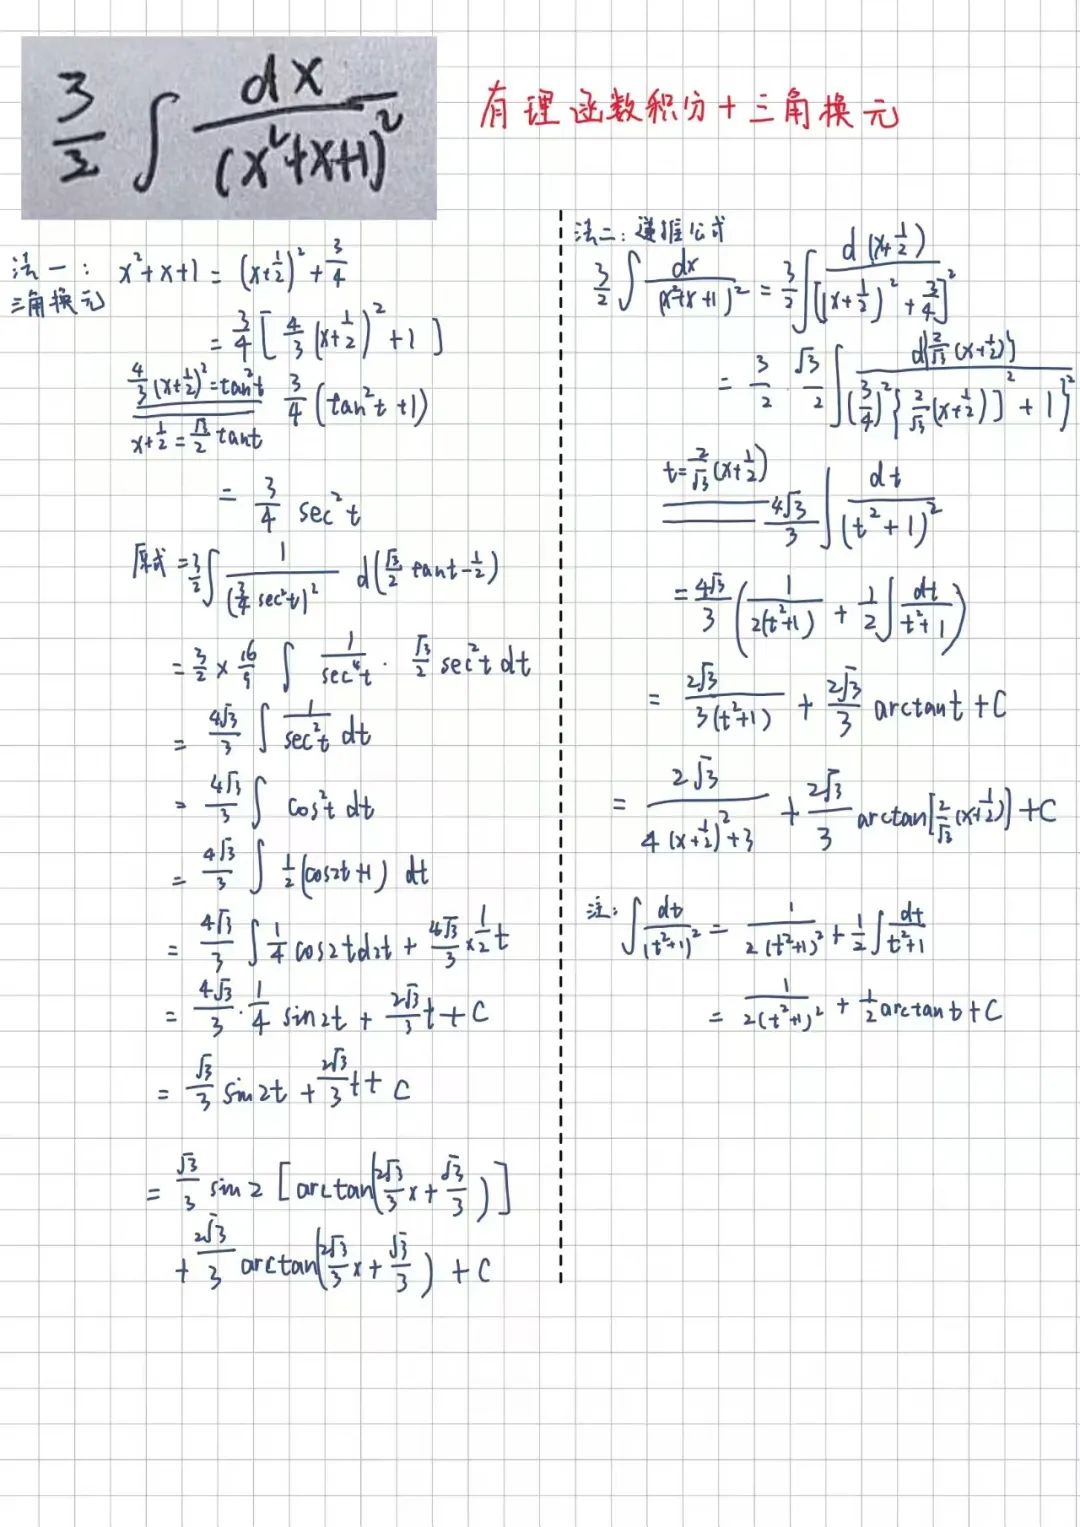 3/2 ∫ dx/(x²+x+1)²
有理函数积分+三角换元
法一: x²+x+1 = (x+1/2)² + 3/4
三角换元
= 3/4 [ 4/3 (x+1/2)² + 1 ]
4/3 (x+1/2)² = tan²t 3/4 (tan²t + 1)
x+1/2 = √3/2 tant
= 3/4 sec²t
原式 = 3/2 ∫ 1/(3/4 sec²t)² d(√3/2 tant - 1/2)
= 3/2 × 16/9 ∫ 1/sec⁴t · √3/2 sec²t dt
= 4√3/3 ∫ 1/sec²t dt
= 4√3/3 ∫ cos²t dt
= 4√3/3 ∫ 1/2 (cos2t+1) dt
= 4√3/3 ∫ 1/4 cos2t d2t + 4√3/3 × 1/2 t
= 4√3/3 · 1/4 sin2t + 2√3/3 t + C
= √3/3 sin2t + 2√3/3 t + C
= √3/3 sin2 [arctan(2√3/3 x + √3/3)]
+ 2√3/3 arctan(2√3/3 x + √3/3) + C
法二: 递推公式
3/2 ∫ dx/(x²+x+1)² = 3/2 ∫ d(x+1/2)/[(x+1/2)² + 3/4]²
= 3/2 · √3/2 ∫ d{2/√3 (x+1/2)}/(3/4)²{[2/√3 (x+1/2)]² + 1}²
t = 2/√3 (x+1/2) 4√3/3 ∫ dt/(t²+1)²
= 4√3/3 (1/2(t²+1) + 1/2 ∫ dt/t²+1)
= 2√3/3(t²+1) + 2√3/3 arctant + C
= 2√3/4(x+1/2)²+3 + 2√3/3 arctan[2/√3 (x+1/2)] + C
注: ∫ dt/(t²+1)² = 1/2(t²+1)² + 1/2 ∫ dt/t²+1
= 1/2(t²+1)² + 1/2 arctan t + C